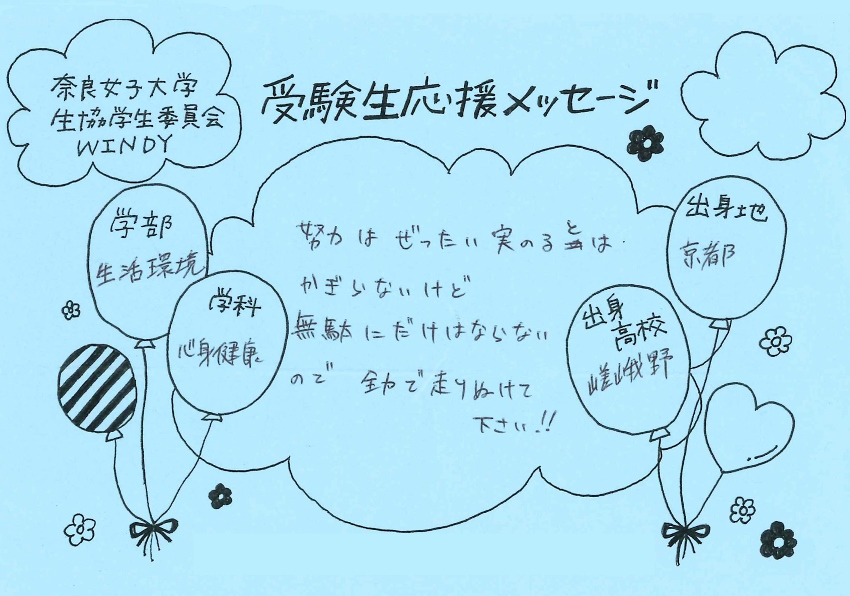 奈良女子大学
生協学生委員会
WINDY
受験生応援メッセージ
学部
生活環境
学科
心身健康
出身地
京都
出身
高校
嵯峨野
努力は ぜったい 実のるとは
かぎらないけど
無駄にだけはならない
ので 全力で走りぬけて
下さい!!